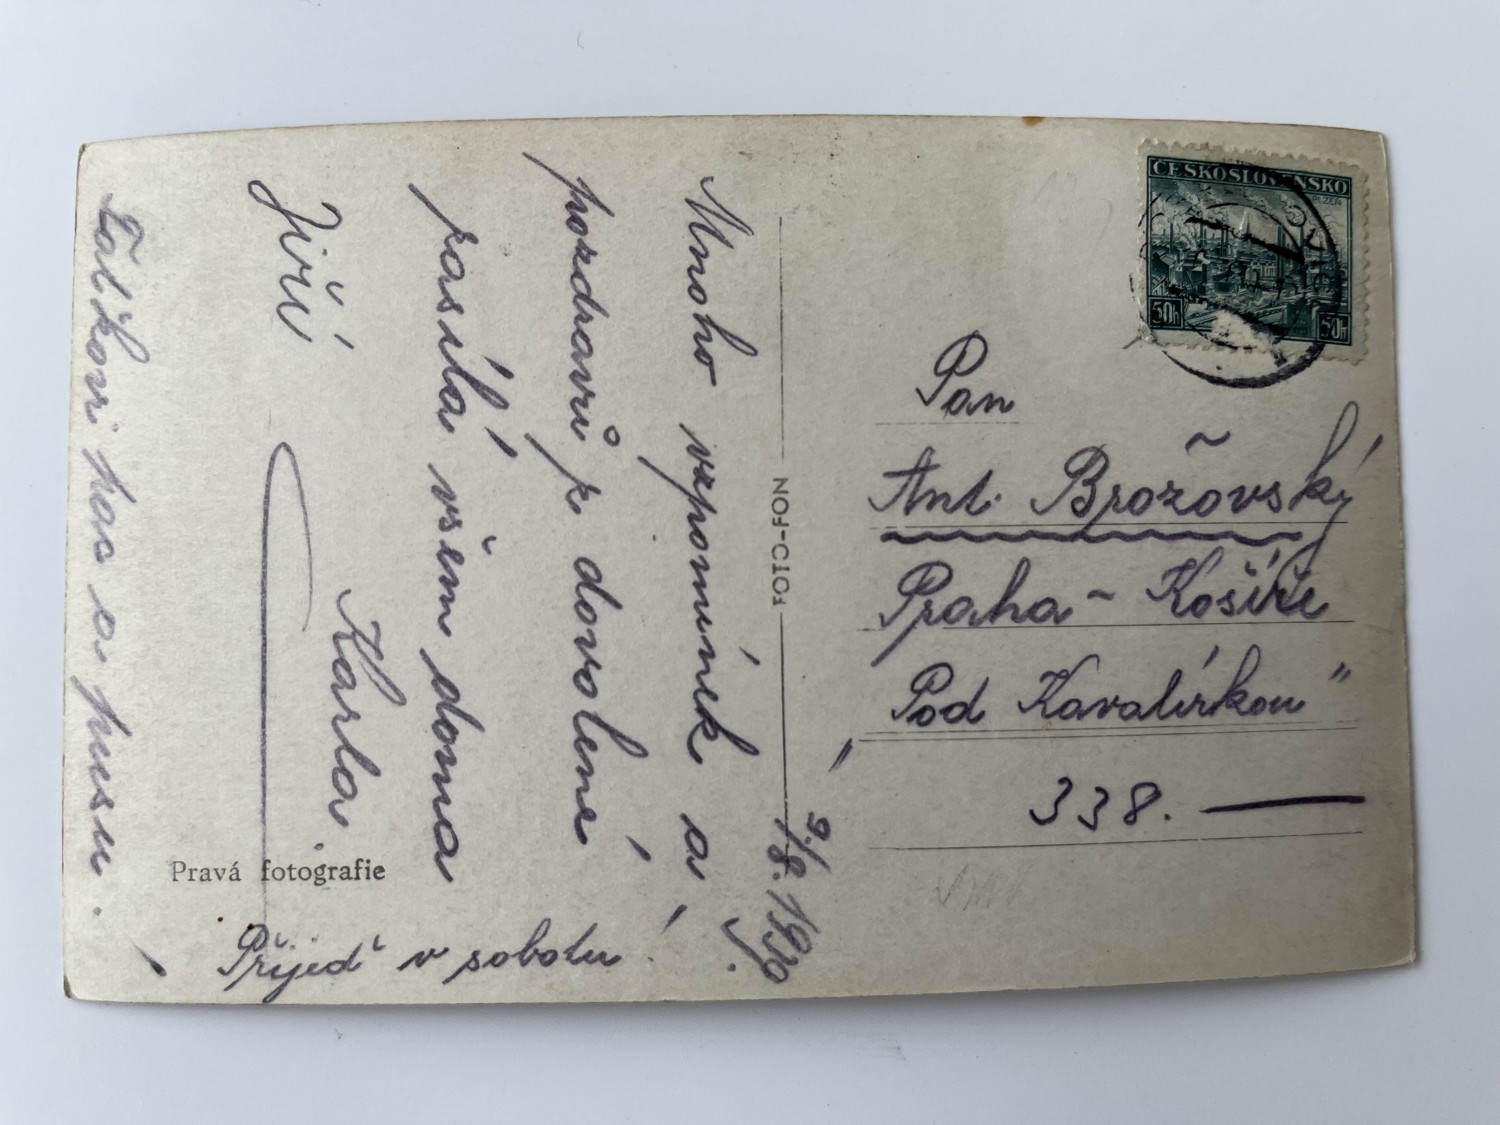 9./8. 1939.
Mnoho vzpomínek a
pozdravů z dovolené
posílá všem doma
Jiří
Karla.
Přijeď v sobotu!
pac a pusu.
Pravá fotografie
FOTO-FON
ČESKOSLOVENSKO
PLZEŇ
50h 50h
Pan
Ant. Brožovský
Praha - Košíře
"Pod Kavalírkou"
338.